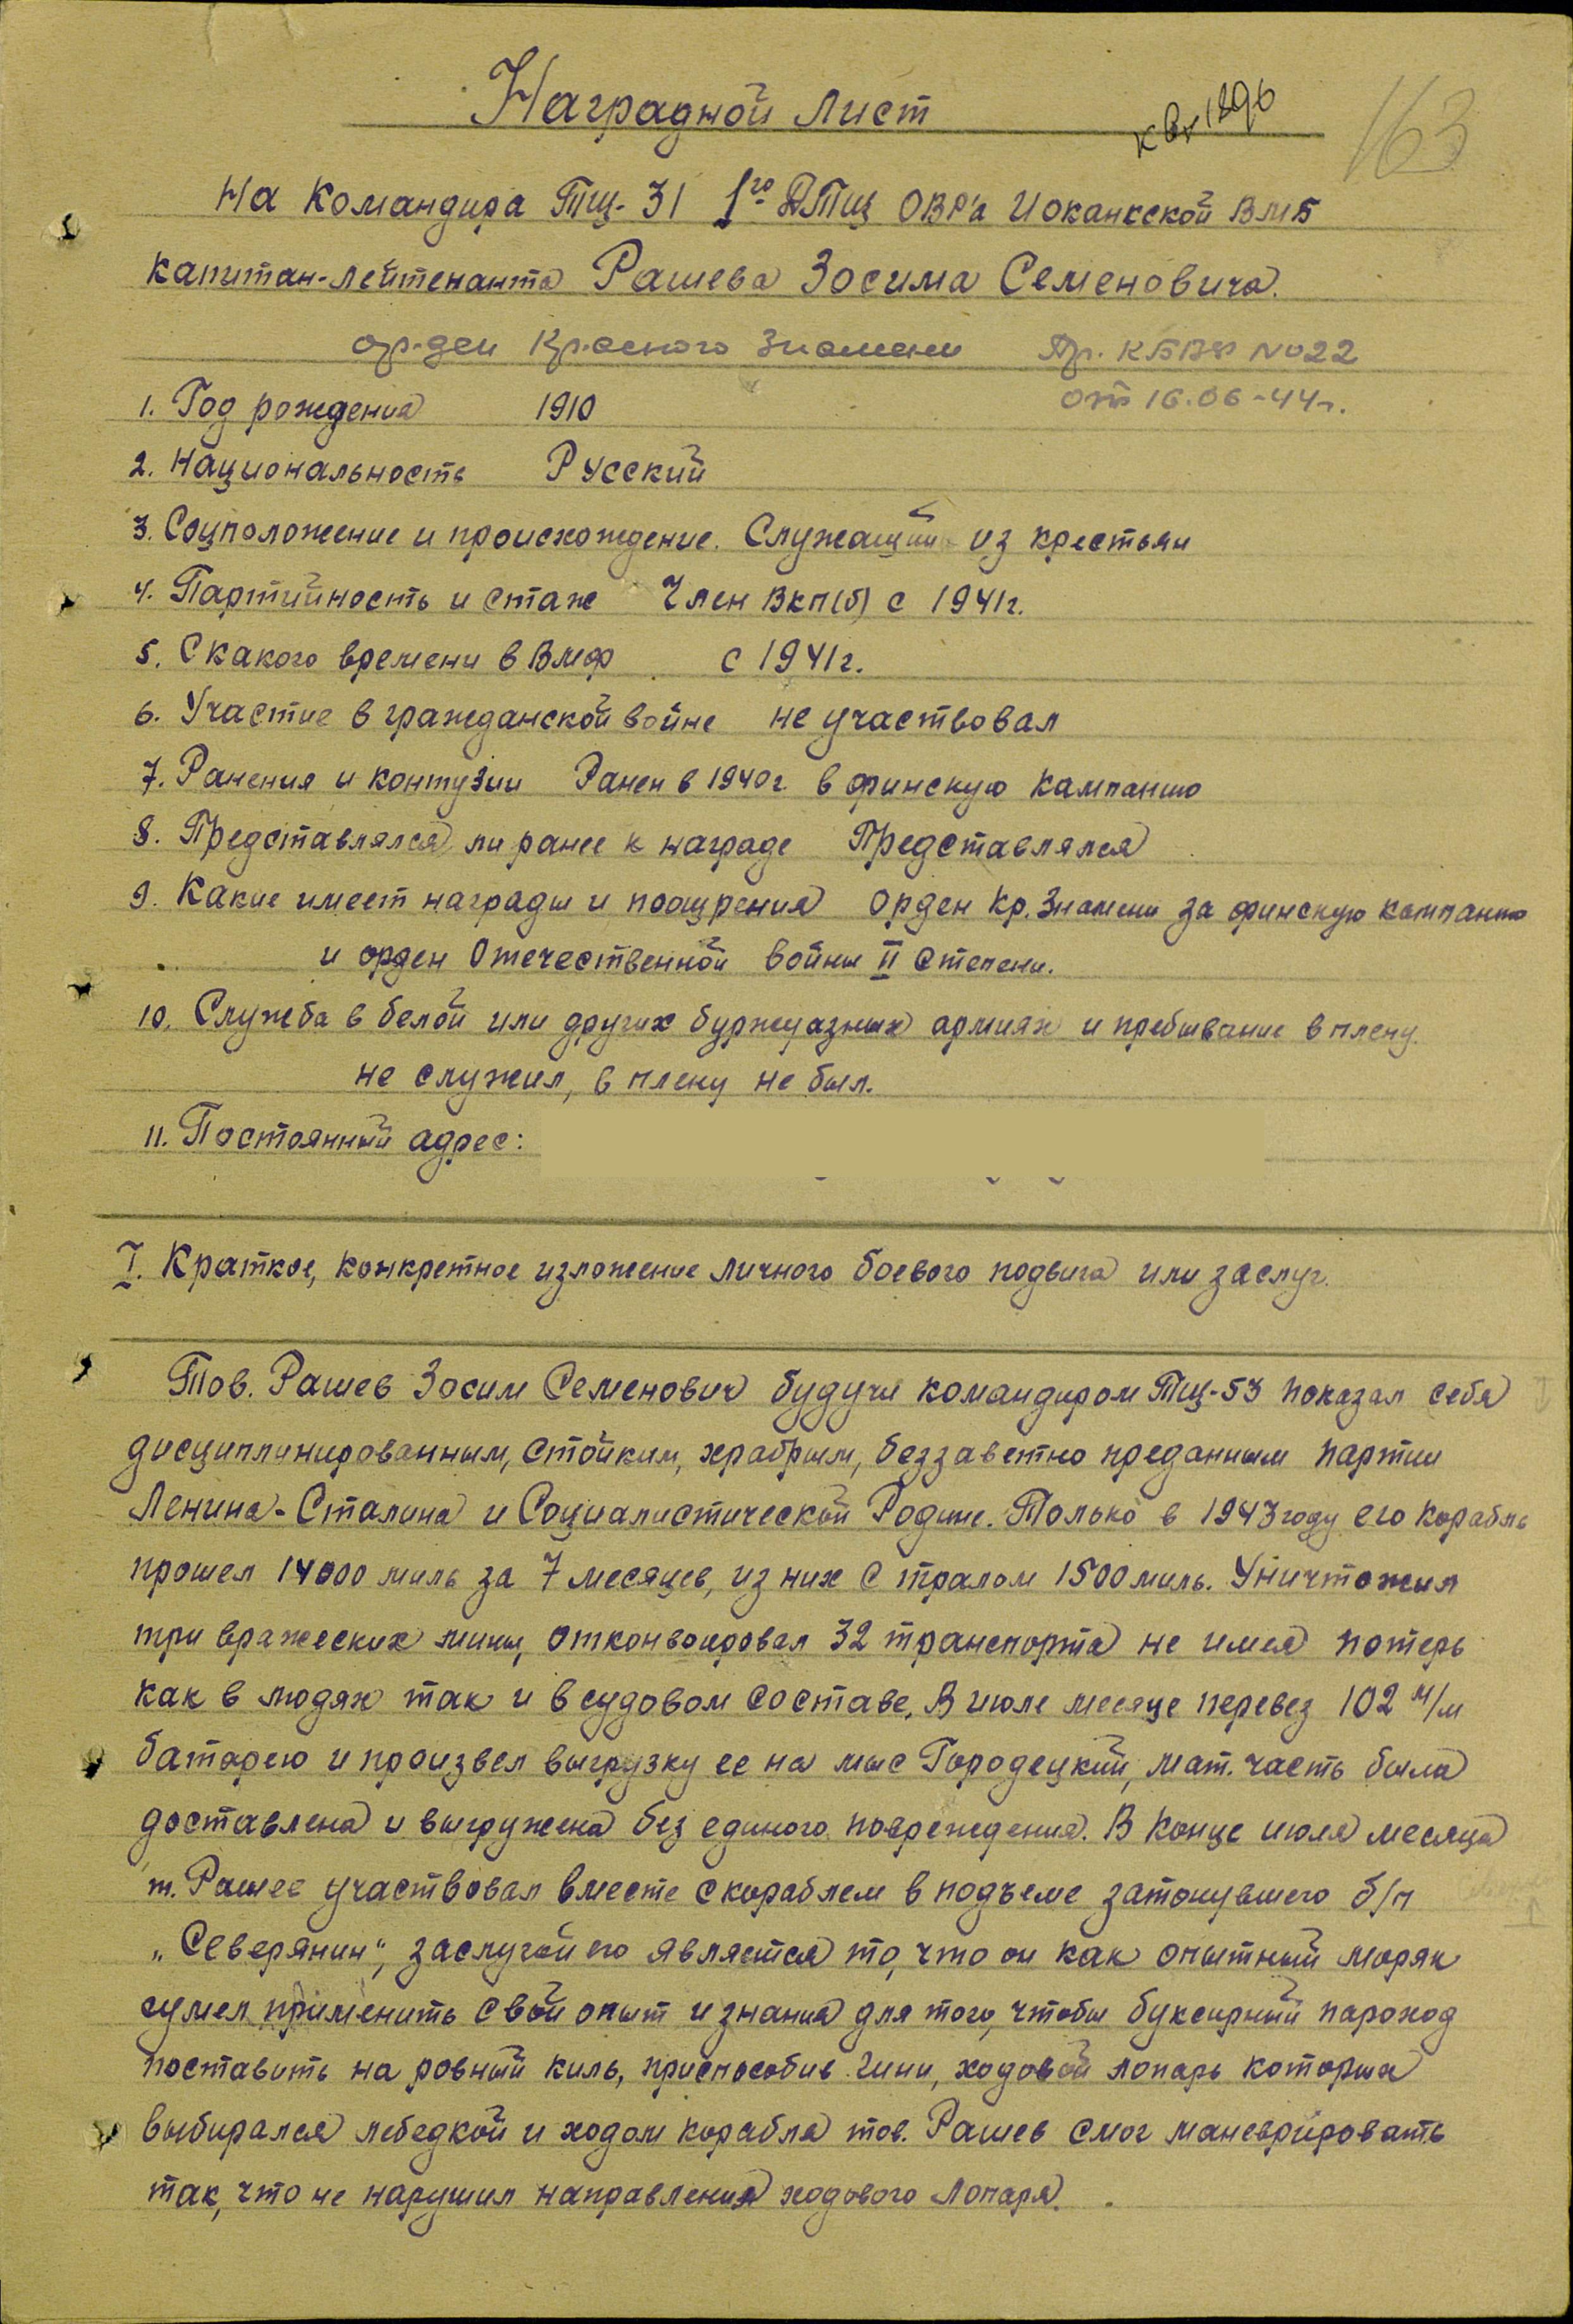 Наградной лист
к вх 1896
163
На Командира ТЩ-31 1го ДТЩ ОВР'а Иоканкской ВМБ
капитан-лейтенанта Рашева Зосима Семеновича.
орден Красного Знамени Пр. КБВФ №022
от 16.06-44г.
1. Год рождения 1910
2. Национальность Русский
3. Соцположение и происхождение. Служащий из крестьян
4. Партийность и стаж Член ВКП(б) с 1941г.
5. С какого времени в ВМФ с 1941г.
6. Участие в гражданской войне не участвовал
7. Ранения и контузии Ранен в 1940г. в финскую кампанию
8. Представлялся ли ранее к награде Представлялся
9. Какие имеет награды и поощрения Орден Кр. Знамени за финскую кампанию
и орден Отечественной войны II степени.
10. Служба в белой или других буржуазных армиях и пребывание в плену.
не служил, в плену не был.
11. Постоянный адрес:
I. Краткое, конкретное изложение личного боевого подвига или заслуг.
Тов. Рашев Зосим Семенович будучи командиром ТЩ-53 показал себя
дисциплинированным, стойким, храбрым, беззаветно преданным партии
Ленина-Сталина и Социалистической Родине. Только в 1943 году его корабль
прошел 14000 миль за 7 месяцев, из них с тралом 1500 миль. Уничтожил
три вражеских мины, отконвоировал 32 транспорта не имея потерь
как в людях так и в судовом составе. В июле месяце перевез 102 м/м
батарею и произвел выгрузку ее на мыс Городецкий, мат. часть была
доставлена и выгружена без единого повреждения. В конце июля месяца
т. Рашев участвовал вместе с кораблем в подъеме затонувшего б/п
„Северянин", заслугой его является то, что он как опытный моряк
сумел применить свой опыт и знания для того, чтобы буксирный пароход
поставить на ровный киль, приспособив гини, ходовой лопарь которых
выбирался лебедкой и ходом корабля тов. Рашев смог маневрировать
так, что не нарушил направления ходового лопаря.